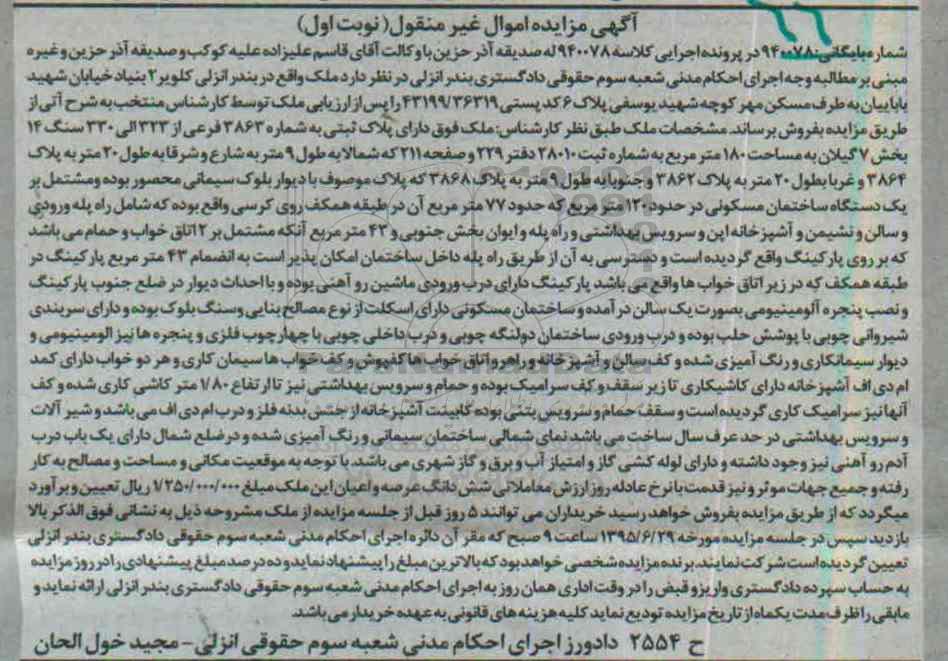 آگهی مزایده اموال غیر منقول( نوبت اول)
شماره بایگانی: ۹۴۰۰۷۸ در پرونده اجرایی کلاسه ۹۴۰۰۷۸ له صدیقه آذر حزین با وکالت آقای قاسم علیزاده علیه کوکب و صدیقه آذر حزین و غیره
مبنی بر مطالبه وجه اجرای احکام مدنی شعبه سوم حقوقی دادگستری بندر انزلی در نظر دارد ملک واقع در بندر انزلی کلویر ۲ بنیاد خیابان شهید
بابابیان به طرف مسکن مهر کوچه شهید یوسفی پلاک ۶ کد پستی ۴۳۱۹۹/۳۶۳۱۹ را پس از ارزیابی ملک توسط کارشناس منتخب به شرح آتی از
طریق مزایده بفروش برساند. مشخصات ملک طبق نظر کارشناس: ملک فوق دارای پلاک ثبتی به شماره ۳۸۶۳ فرعی از ۳۲۳ الی ۳۳۰ سنگ ۱۴
بخش ۷ گیلان به مساحت ۱۸۰ متر مربع به شماره ثبت ۲۸۰۱۰ دفتر ۲۲۹ و صفحه ۲۱۱ که شمالا به طول ۹ متر به شارع و شرقا به طول ۲۰ متر به پلاک
۳۸۶۴ و غربا بطول ۲۰ متر به پلاک ۳۸۶۲ و جنوبا به طول ۹ متر به پلاک ۳۸۶۸ که پلاک موصوف با دیوار بلوک سیمانی محصور بوده و مشتمل بر
یک دستگاه ساختمان مسکونی در حدود ۱۲۰ متر مربع که حدود ۷۷ متر مربع آن در طبقه همکف روی کرسی واقع بوده که شامل راه پله ورودی
و سالن و نشیمن و آشپزخانه اپن و سرویس بهداشتی و راه پله و ایوان بخش جنوبی و ۴۳ متر مربع آنکه مشتمل بر ۲ اتاق خواب و حمام می باشد
که بر روی پارکینگ واقع گردیده است و دسترسی به آن از طریق راه پله داخل ساختمان امکان پذیر است به انضمام ۴۳ متر مربع پارکینگ در
طبقه همکف که در زیر اتاق خواب ها واقع می باشد پارکینگ دارای درب ورودی ماشین رو آهنی بوده و با احداث دیوار در ضلع جنوب پارکینگ
و نصب پنجره آلومینیومی بصورت یک سالن در آمده و ساختمان مسکونی دارای اسکلت از نوع مصالح بنایی و سنگ بلوک بوده و دارای سربندی
شیروانی چوبی با پوشش حلب بوده و درب ورودی ساختمان دولنگه چوبی و درب داخلی چوبی با چهارچوب فلزی و پنجره ها نیز الومینیومی و
دیوار سیمانکاری و رنگ آمیزی شده و کف سالن و آشپزخانه و راهرو اتاق خواب ها کفپوش و کف خواب ها سیمان کاری و هر دو خواب دارای کمد
ام دی اف آشپزخانه دارای کاشیکاری تا زیر سقف و کف سرامیک بوده و حمام و سرویس بهداشتی نیز تا ارتفاع ۱/۸۰ متر کاشی کاری شده و کف
آنها نیز سرامیک کاری گردیده است و سقف حمام و سرویس بتنی بوده کابینت آشپزخانه از جنس بدنه فلز و درب ام دی اف می باشد و شیر آلات
و سرویس بهداشتی در حد عرف سال ساخت می باشد نمای شمالی ساختمان سیمانی و رنگ آمیزی شده و در ضلع شمال دارای یک باب درب
آدم رو آهنی نیز وجود داشته و دارای لوله کشی گاز و امتیاز آب و برق و گاز شهری می باشد. با توجه به موقعیت مکانی و مساحت و مصالح به کار
رفته و جمیع جهات موثر و نیز قدمت با نرخ عادله روز ارزش معاملاتی شش دانگ عرصه و اعیان این ملک مبلغ ۱/۲۵۰/۰۰۰/۰۰۰ ریال تعیین و برآورد
میگردد که از طریق مزایده بفروش خواهد رسید خریداران می توانند ۵ روز قبل از جلسه مزایده از ملک مشروحه ذیل به نشانی فوق الذکر بالا
بازدید سپس در جلسه مزایده مورخه ۱۳۹۵/۶/۲۹ ساعت ۹ صبح که مقر آن دائره اجرای احکام مدنی شعبه سوم حقوقی دادگستری بندر انزلی
تعیین گردیده است شرکت نمایند. برنده مزایده شخصی خواهد بود که بالاترین مبلغ را پیشنهاد نماید و ده درصد مبلغ پیشنهادی را در روز مزایده
به حساب سپرده دادگستری واریز و قبض را در وقت اداری همان روز به اجرای احکام مدنی شعبه سوم حقوقی دادگستری بندر انزلی ارائه نماید و
مابقی را ظرف مدت یکماه از تاریخ مزایده تودیع نماید کلیه هزینه های قانونی به عهده خریدار می باشد.
ح ۲۵۵۴ دادورز اجرای احکام مدنی شعبه سوم حقوقی انزلی - مجید خول الحان